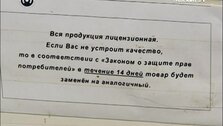 Вся продукция лицензионная.
Если Вас не устроит качество,
то в соответствии с «Законом о защите прав
потребителей» в течение 14 дней товар будет
заменён на аналогичный.